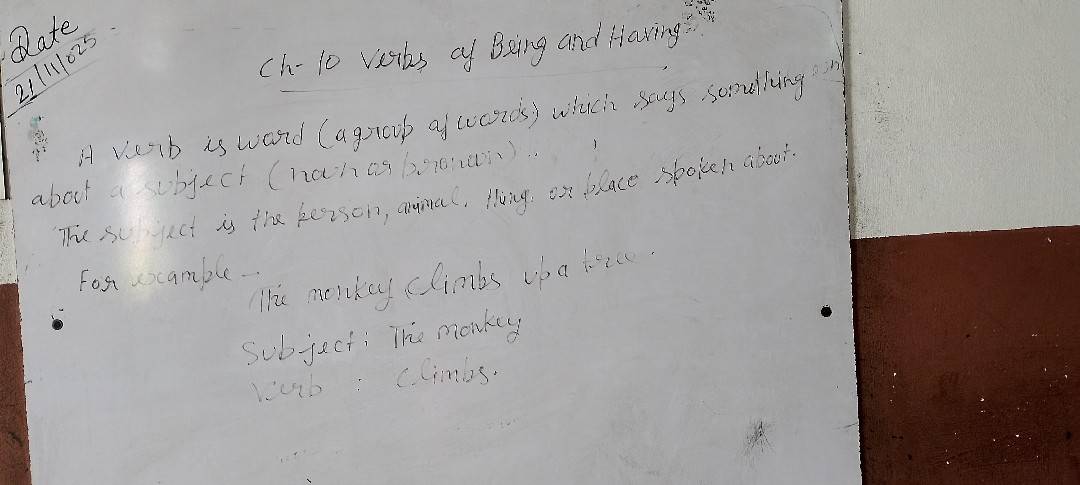 Date
21/11/025
Ch-10 Verbs of Being and Having
A Verb is word (a group of words) which says something
about a subject (noun or pronoun)..
The subject is the person, animal, thing, or place spoken about.
For example -
The monkey climbs up a tree.
Subject: The monkey
Verb : Climbs.